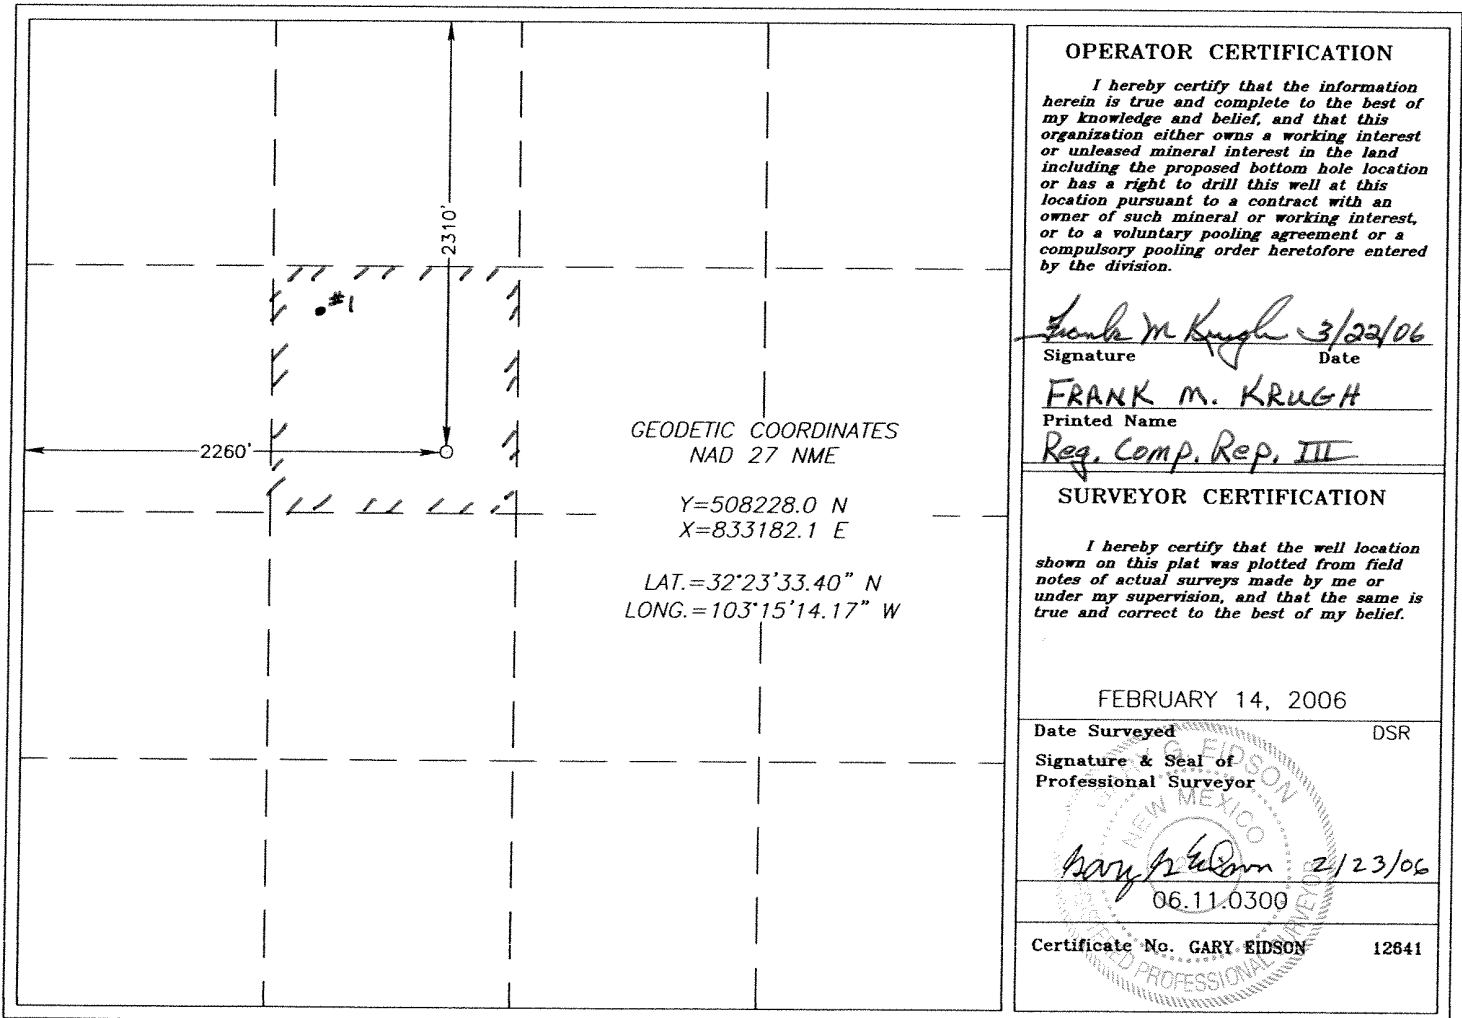 2310'
#1
2260'
GEODETIC COORDINATES
NAD 27 NME
Y=508228.0 N
X=833182.1 E
LAT.=32°23'33.40" N
LONG.=103°15'14.17" W
OPERATOR CERTIFICATION
I hereby certify that the information
herein is true and complete to the best of
my knowledge and belief, and that this
organization either owns a working interest
or unleased mineral interest in the land
including the proposed bottom hole location
or has a right to drill this well at this
location pursuant to a contract with an
owner of such mineral or working interest,
or to a voluntary pooling agreement or a
compulsory pooling order heretofore entered
by the division.
Frank M Krugh 3/22/06
Signature Date
FRANK M. KRUGH
Printed Name
Reg. Comp. Rep. III
SURVEYOR CERTIFICATION
I hereby certify that the well location
shown on this plat was plotted from field
notes of actual surveys made by me or
under my supervision, and that the same is
true and correct to the best of my belief.
FEBRUARY 14, 2006
Date Surveyed DSR
Signature & Seal of
Professional Surveyor
GARY G. EIDSON
NEW MEXICO
PROFESSIONAL SURVEYOR
Gary G Eidson 2/23/06
06.11.0300
Certificate No. GARY EIDSON 12641